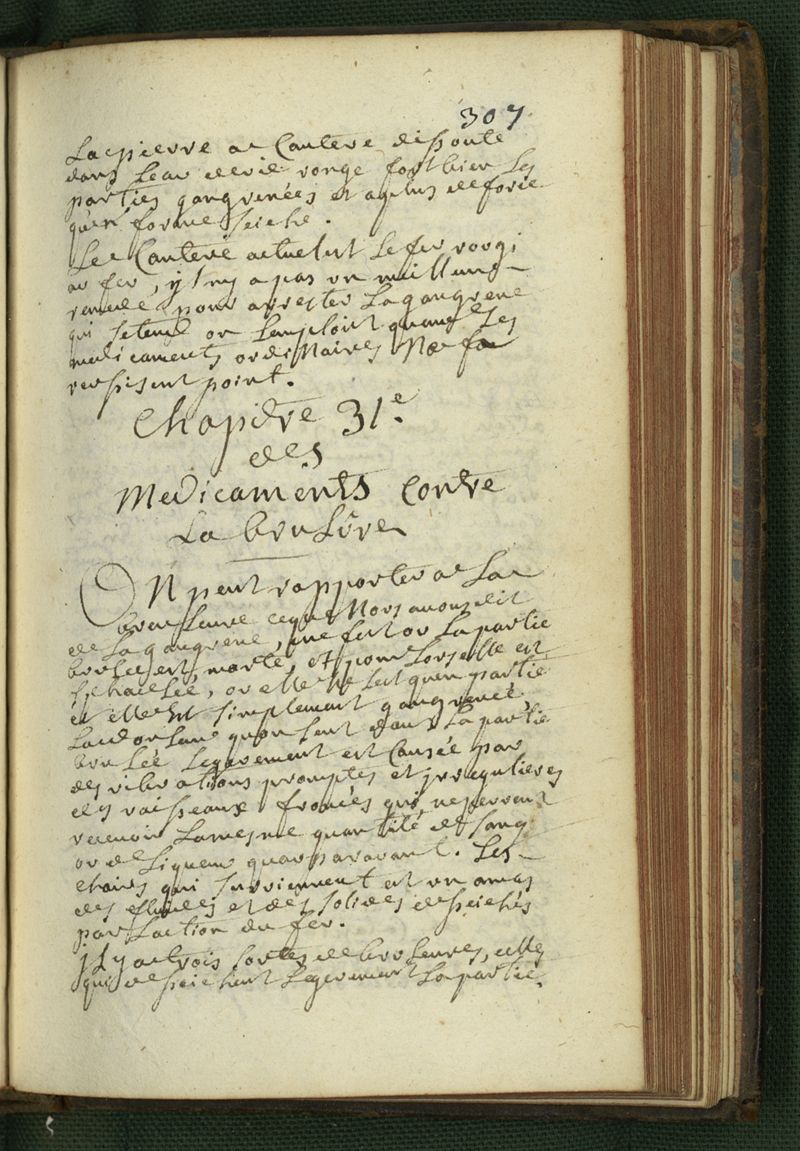 307
La pierre a Cautere dissoute
dans Leau de vie ronge fort bien Les
parties gangrenées et a plus de force
qu'en forme seiche.
Le Cautere actuel est Le fer rougi
au feu, yl ny a pas un meilleur
remede pour arrester La gangrene
qui setend on Lemploit quand Les
medicaments ordinaires Ne
reusisent point.
Chapitre 31e.
des
Medicaments contre
La brulûre
ON peut rapporter a La
brulure ce que Nous avons dit
de La gangrene, La partie
brulée est morte, et pour Lors elle est
sphacelée, ou elle ne Lest quen partie
et elle est simplement gangrenée
La douleur quon sent dans La partie
brulée Legerement est Causée par
des vibrations promptes et jrregulieres
des vaisseaux froncés qui ne peuvent
recevoir La mesme quantité de sang
ou de Liqueur quauparavant. Les
qui surviennent est un amas
des fluides et des solides desseichés
par Laction du feu.
jL y a trois sortes de brulures, celles
qui desseichent Legerement La partie.